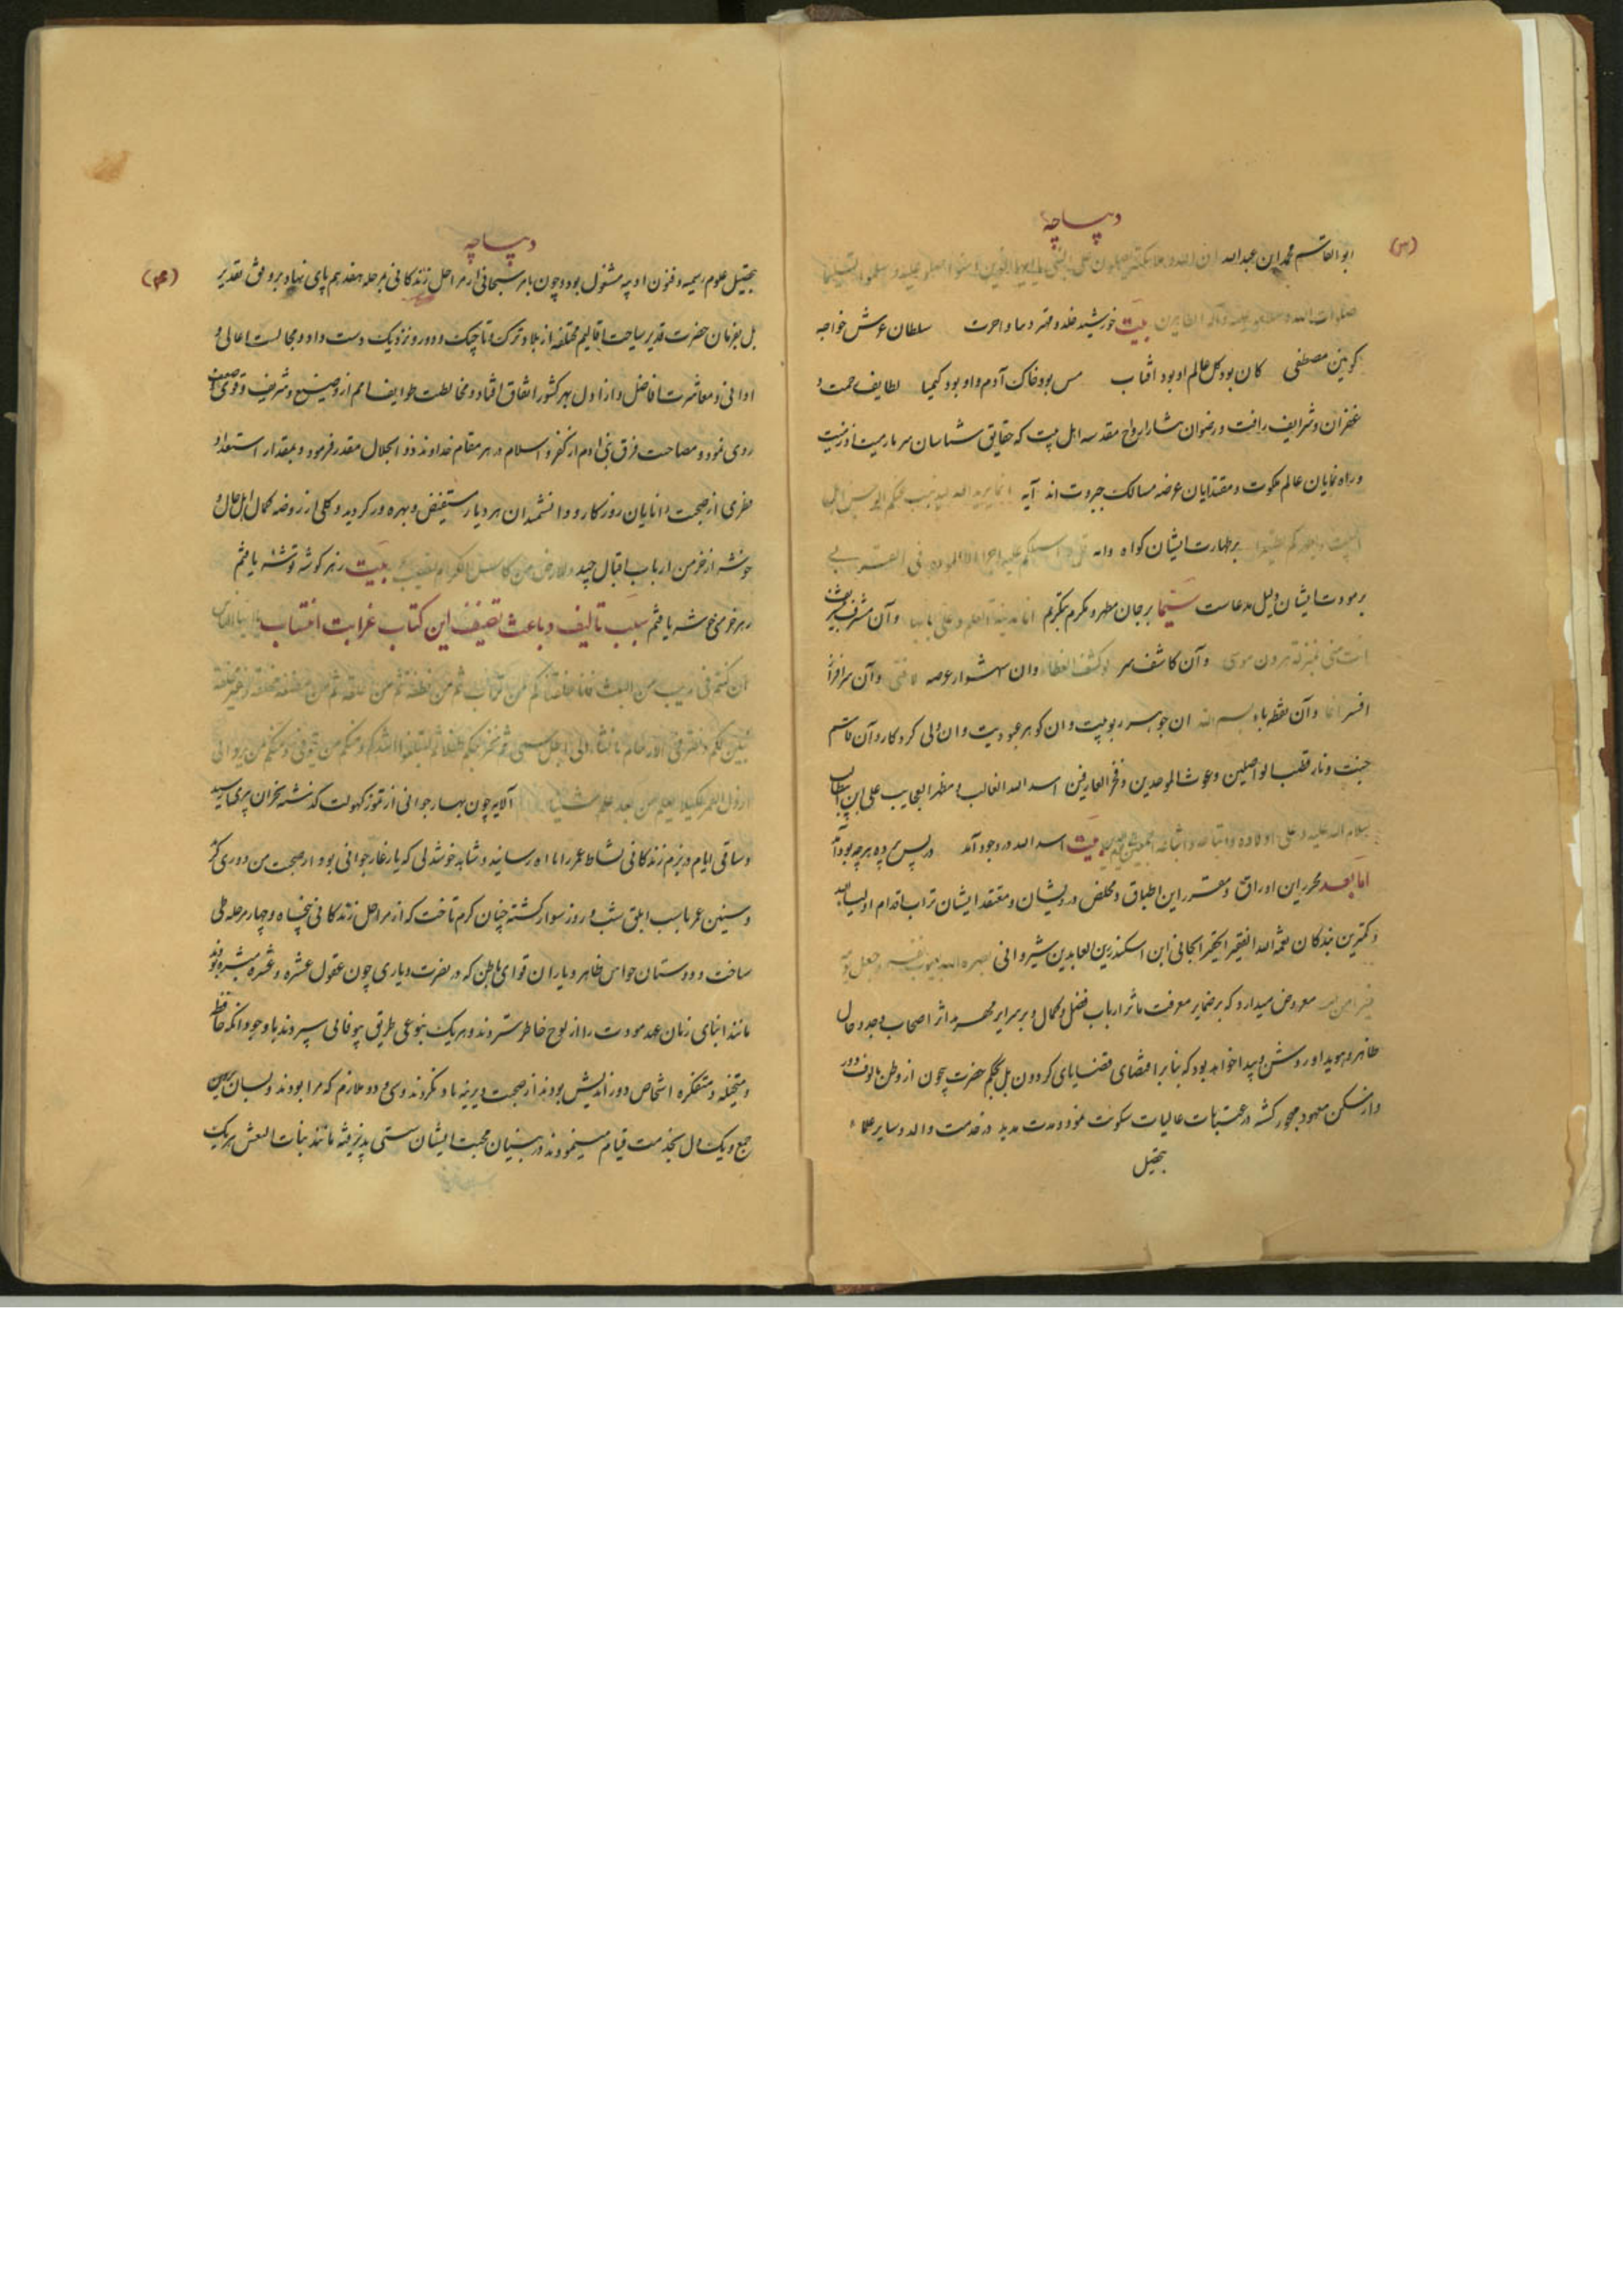 دیباچه
(۳)
ابو القاسم محمد ابن عبدالله ان الله و ملائکته یصلون علی النبی یا ایها الذین امنوا صلوا علیه و سلموا تسلیما
صلوات الله و سلامه علیه و آله الطاهرین بیت خورشید خلد و مهر و سلطان عرش خواجه
کونین مصطفی کان بود کل عالم او بود افتاب مس بود خاک آدم و او بود کیمیا لطایف رحمت و
غفران و شرایف رافت و رضوان نثار ارواح مقدسه اهل بیت که حقایق شناسان سر مارمیت اذ رمیت
و راه نمایان عالم ملکوت و مقتدایان عرصه مسالک جبروت اند آیه انما یرید الله لیذهب عنکم الرجس اهل
البیت و یطهرکم تطهیرا بر طهارت ایشان کواه و آیه قل لا اسئلکم علیه اجرا الا المودة فی القربی
بر مودت ایشان دلیل مدعاست سیما بر جان مطهر و مکرم بتکریم انا مدینة العلم و علی بابها و آن مشرف بتشریف
انت منی بمنزله هرون موسی و آن کاشف سر لو کشف الغطاء و ان شهسوار عرصه لا فتی و آن سرافراز
افسر انما و آن نقطه باء بسم الله ان جوهر ربوبیت و ان کوهر عبودیت و ان ولی کردکار و آن قاسم
جنت و نار قطب الواصلین و غوث الموحدین و فخر العارفین اسد الله الغالب و مظهر العجایب علی ابن ابیطالب
سلام الله علیه و علی اولاده و اتباعه و اشیاعه اجمعین بیت اسد الله در وجود آمد در پس پرده هرچه بود آمد
اما بعد محرر این اوراق و مقرر این اطباق و مخلص درویشان و معتقد ایشان تراب اقدام اولیاء الله
و کمترین بندکان نعمة الله الفقیر الحقیر الجانی ابن اسکندر زین العابدین شیروانی بصره الله بعیوب نفسه و جعل یومه
خیرا من امسه معروض میدارد که بر ضمایر معرفت ماثر ارباب فضل و کمال و بر سرایر مهر اثر اصحاب وجد و حال
ظاهر و هویدا و روشن و پیدا خواهد بود که بنا بر اقتضای قضایای کردون بل بحکم حضرت بیچون از وطن مالوف دور
و از مسکن معهود مهجور کشته در عتبات عالیات سکونت نمود و مدت مدید در خدمت والد و سایر علماء
بتحصیل
دیباچه
(۴)
بتحصیل علوم رسمیه و فنون ادبیه مشغول بود و چون بامر سبحانی از مراحل زندکانی بمرحله هفدهم پای نهاد بر وفق تقدیر
بل بفرمان حضرت قدیر سیاحت اقالیم مختلفه از بلاد ترک و تاجیک و دور و نزدیک دست داد و مجالست اعالی و
ادانی و معاشرت افاضل و اراذل بهر کشور اتفاق افتاد و مخالطت طوایف امم از وضیع و شریف و قوی و ضعیف
روی نمود و مصاحبت فرق بنی ادم از کفر و اسلام در هر مقام خداوند ذو الجلال مقدر فرمود و بمقدار استعداد
فطری از صحبت دانایان روزکار و دانشمندان هر دیار مستفیض و بهره ور کردید و کلی از روضه کمال اهل حال و
خوشه از خرمن ارباب اقبال چید و للارض من کاس الکرام نصیب بیت ز هر کوشه توشه یافتم
ز هر خرمنی خوشه یافتم سبب تالیف و باعث تصنیف این کتاب غرابت انتساب یا ایها الناس
ان کنتم فی ریب من البعث فانا خلقناکم من تراب ثم من نطفة ثم من علقة ثم من مضغة مخلقة و غیر مخلقة
لنبین لکم و نقر فی الارحام ما نشاء الی اجل مسمی ثم نخرجکم طفلا ثم لتبلغوا اشدکم و منکم من یتوفی و منکم من یرد الی
ارذل العمر لکیلا یعلم من بعد علم شیئا الایه چون بهار جوانی از تموز کهولت کذشته بخزان پیری رسید
و ساقی ایام در بزم زندکانی نشاط عمر را باه رسانید و شاهد خوشدلی که یار غار جوانی بود از صحبت من دوری کزید
و سنین عمر باسب ابلق شب و روز سوار کشته چنان کرم تاخت که از مراحل زندکانی پنجاه و چهار مرحله طی
ساخت و دوستان حواس ظاهر و یاران قوای باطن که در نصرت و یاری چون عقول عشره و عشره مبشره بودند
مانند ابنای زمان عهد مودت را از لوح خاطر ستردند و هر یک بنوعی طریق بیوفائی سپردند با وجود انکه حافظه
و متخیله و متفکره اشخاص دور اندیش بودند از صحبت دیرینه یاد نکردند و سی و دو ملازم که مرا بودند و بسان پروین
جمع و یک سال بخدمت قیام مینمودند در بنیان محبت ایشان سستی پذیرفته مانند بنات النعش هر یک